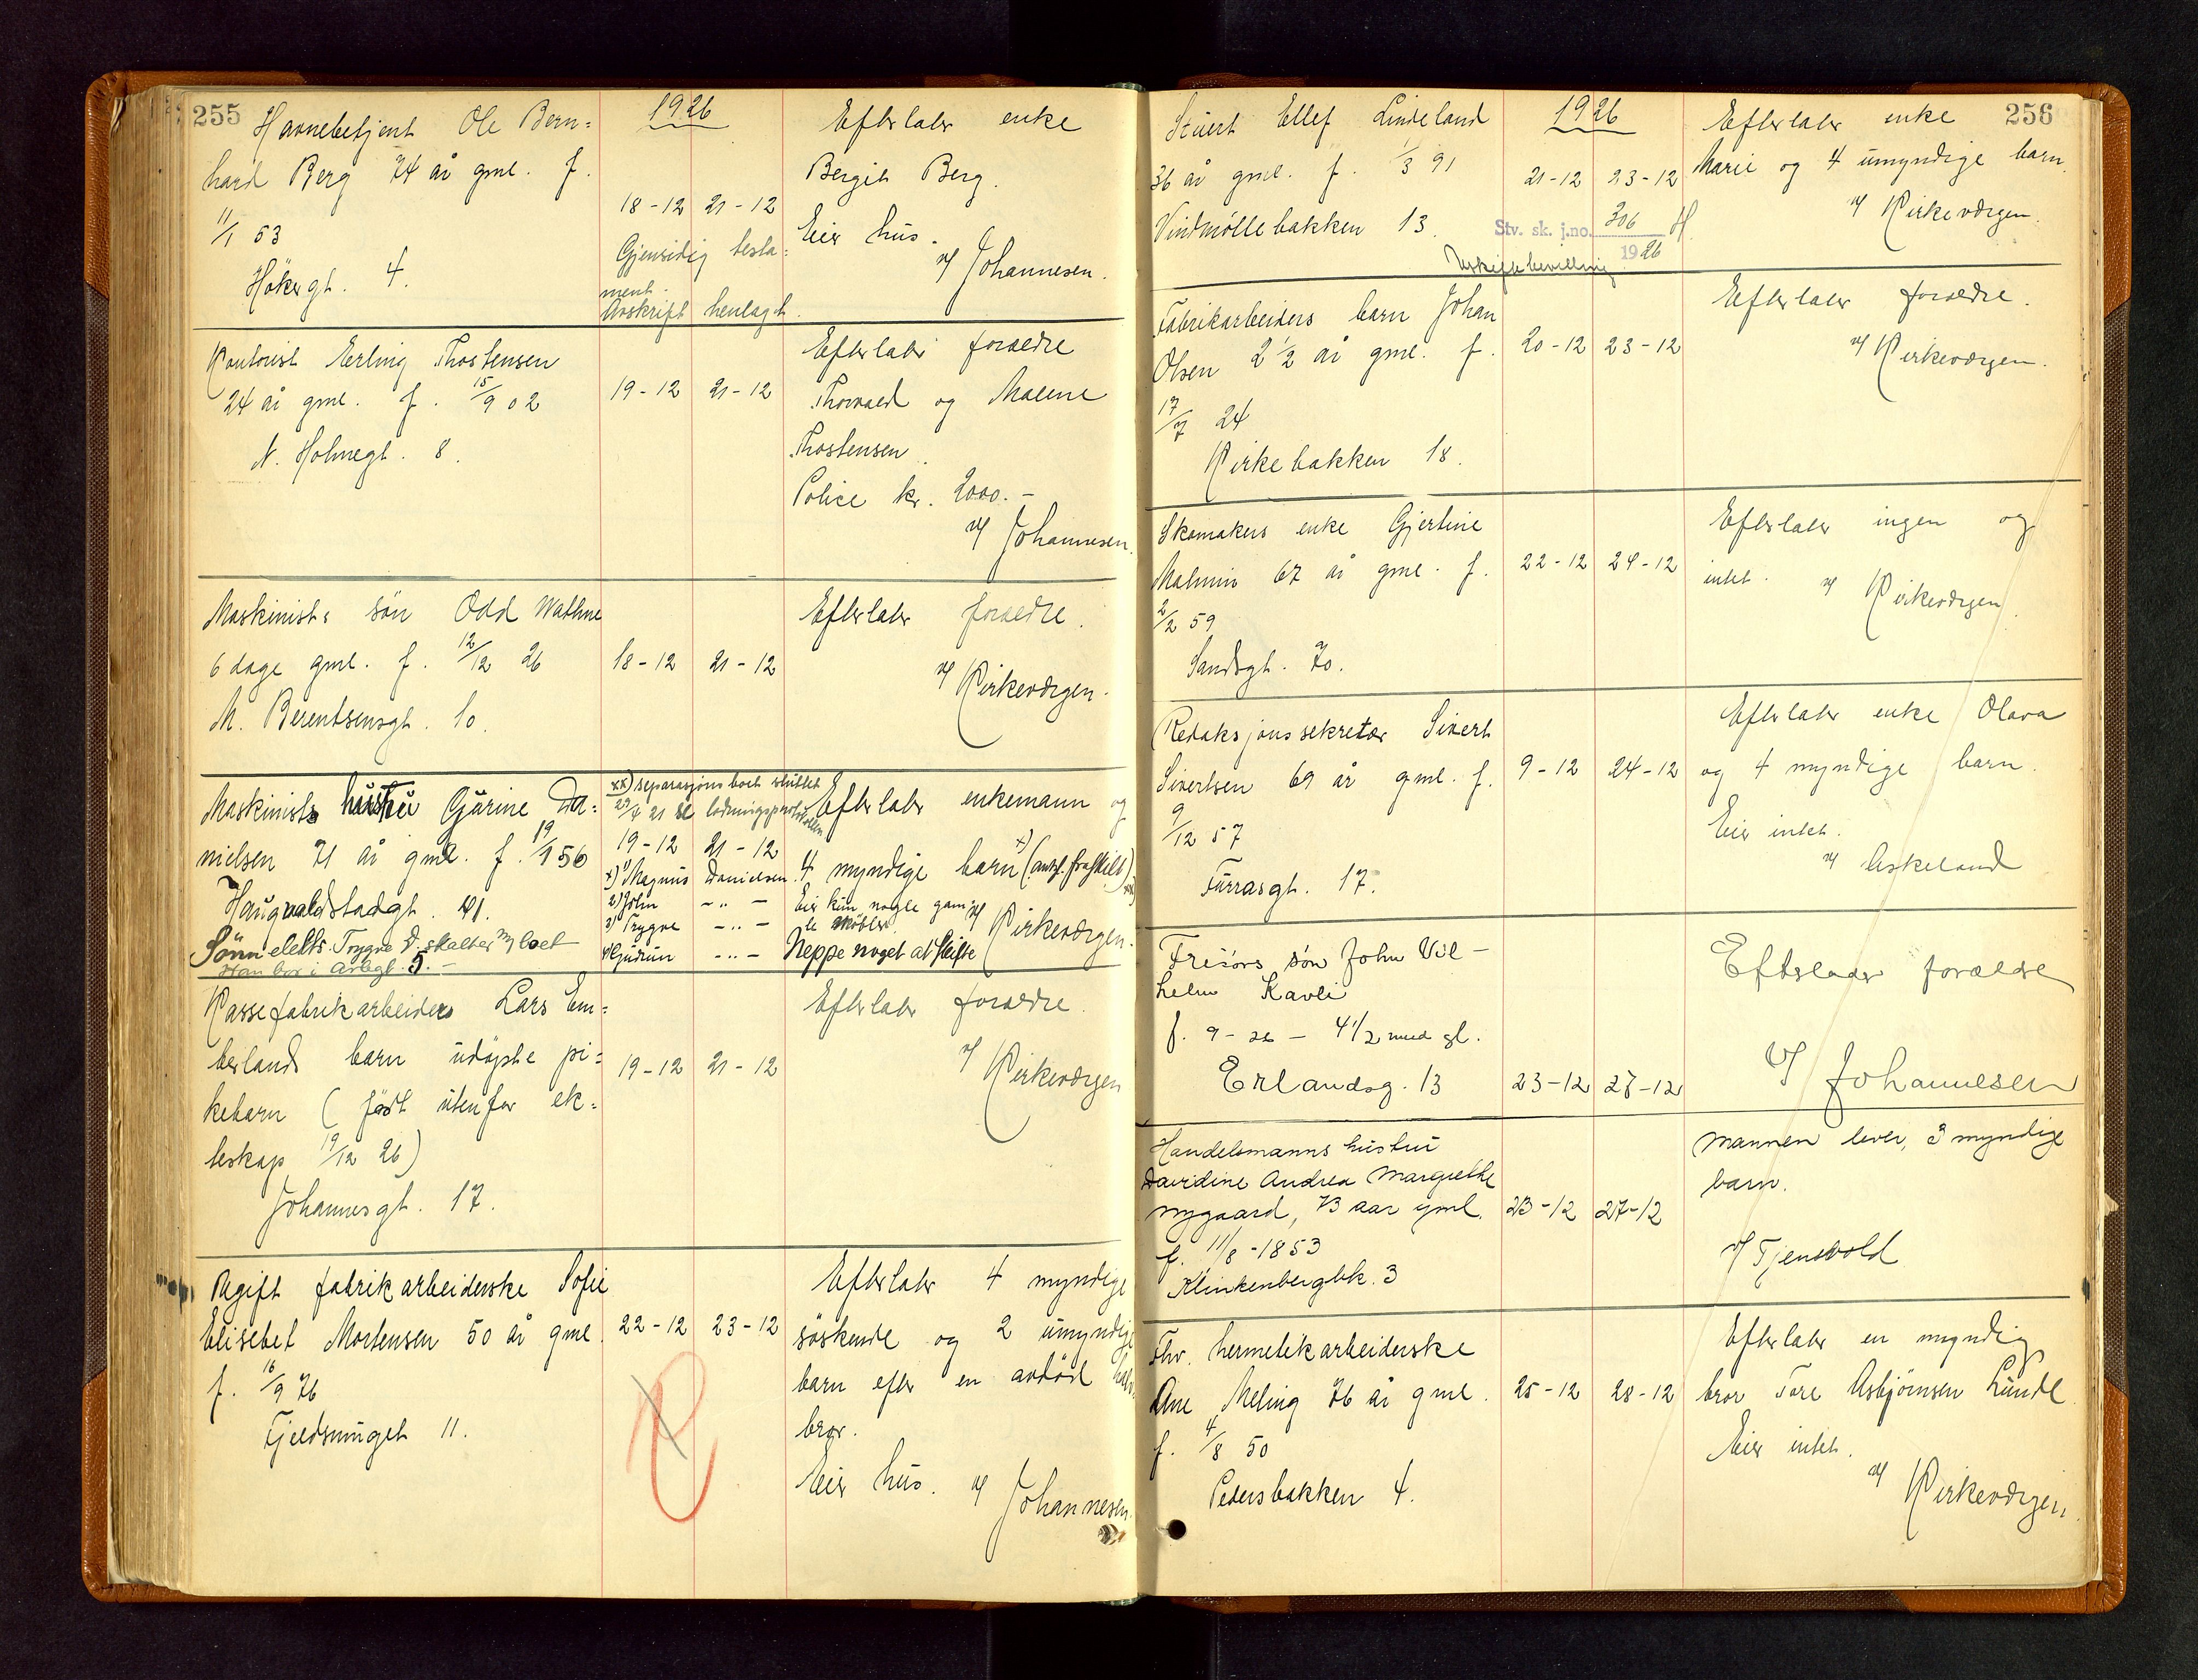 255
1926
Havnebetjent Ole Bern=
hard Berg 74 år gml. f.
11/1 53
Høkergt. 4.
18-12 21-12
Gjensidig testa=
ment.
Avskrift henlagt.
Efterlater enke
Bergit Berg.
Eier hus.
v/ Johannesen.
Kontorist Erling Thostensen
24 år gml. f. 15/9 02
N. Holmegt. 8.
19-12 21-12
Efterlater forældre
Thorvald og Malene
Thostensen.
Police kr. 2000.-
v/ Johannesen.
Maskinists søn Odd Wathne
6 dage gml. f. 12/12 26
M. Berentsensgt. 10.
18-12 21-12
Efterlater forældre.
v/ Kirkevergen.
Maskinists hustru Gjurine Da=
nielsen 71 år gml. f. 19/1 56
Haugvaldstadgt. 41.
Sønn elekts. Trygve D. skalter m/ boet
Han bor i Arbegt. 5.-
xx) separasjonsboet sluttet
21 se lodningsprotokollen
19-12 21-12
x) 1) Magnus Danielsen.
2) John -"-
3) Trygve -"-
4) Gudrun -"-
Efterlater enkemann og
4 myndige barn x) (fraskilt) xx)
Eier kun nogle gam=
le møbler.
v/ Kirkevergen.
Neppe noget at skifte
Kassefabrikarbeider Lars Em=
berlands barn udøpte pi=
kebarn (født utenfor ek=
teskap 19/12 26)
Johannesgt. 17.
19-12 21-12
Efterlater forældre.
v/ Kirkevergen
Ugift fabrikarbeiderske Sofie
Elisebet Mortensen 50 år gml.
f. 16/9 76
Fjeldsmuget 11.
22-12 23-12
Efterlater 4 myndige
søskende og 2 umyndige
barn efter en avdød halv
bror.
Eier hus. v/ Johannesen.
256
1926
Stuert Ellef Lindeland
36 år gml. f. 1/3 91
Vindmøllebakken 13.
21-12 23-12
Stv. sk. j.no. 306 H.
1926
Uskiftebevilling
Efterlater enke
Marie og 4 umyndige barn.
v/ Kirkevergen.
Fabrikarbeiders barn Johan
Olsen 2 1/2 år gml. f.
17/7 24
Kirkebakken 18.
20-12 23-12
Efterlater forældre.
v/ Kirkevergen.
Skomakers enke Gjertine
Malmin 67 år gml. f.
2/2 59
Sandsgt. 70.
22-12 24-12
Efterlater ingen og
intet. v/ Kirkevergen.
Redaksjonssekretær Sivert
Sivertsen 69 år gml. f.
9/12 57
Furrasgt. 17.
9-12 24-12
Efterlater enke Olava
og 4 myndige barn.
Eier intet.
v/ Askeland
Frisørs søn John Vil-
helm Kavli
f. 9-26 - 4 1/2 mnd gl.
Erlandsg. 13
23-12 27-12
Efterlader forældre
v/ Johannesen
Handelsmanns hustru
Davidine Andrea Margrethe
Nygaard, 73 aar gml.
f. 11/8-1853
Klinkenbergbk. 3
23-12 27-12
Mannen lever, 3 myndige
barn.
v/ Tjensvold
Fhv. hermetikarbeiderske
Ane Meling 76 år gml.
f. 4/8 50
Pedersbakken 4.
25-12 28-12
Efterlater en myndig
bror Tore Asbjørnsen Lunde.
Eier intet.
v/ Kirkevergen.